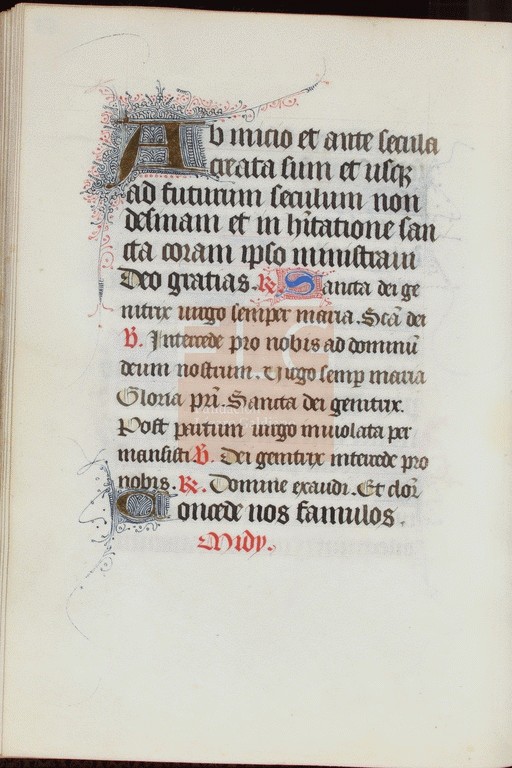 Ab inicio et ante secula
creata sum et usq
ad futurum seculum non
desinam et in hītatione san
cta coram ipso ministraui
Deo gratias. R. Sancta dei ge
nitrix uirgo semper maria. Scā dei
V. Intercede pro nobis ad dominū
deum nostrum. Uirgo semp maria
Gloria prī. Sancta dei genitrix.
Post partum uirgo inuiolata per
mansisti. V. Dei genitrix intercede pro
nobis. R. Domine exaudi. Et clor
Concede nos famulos.
Midy.